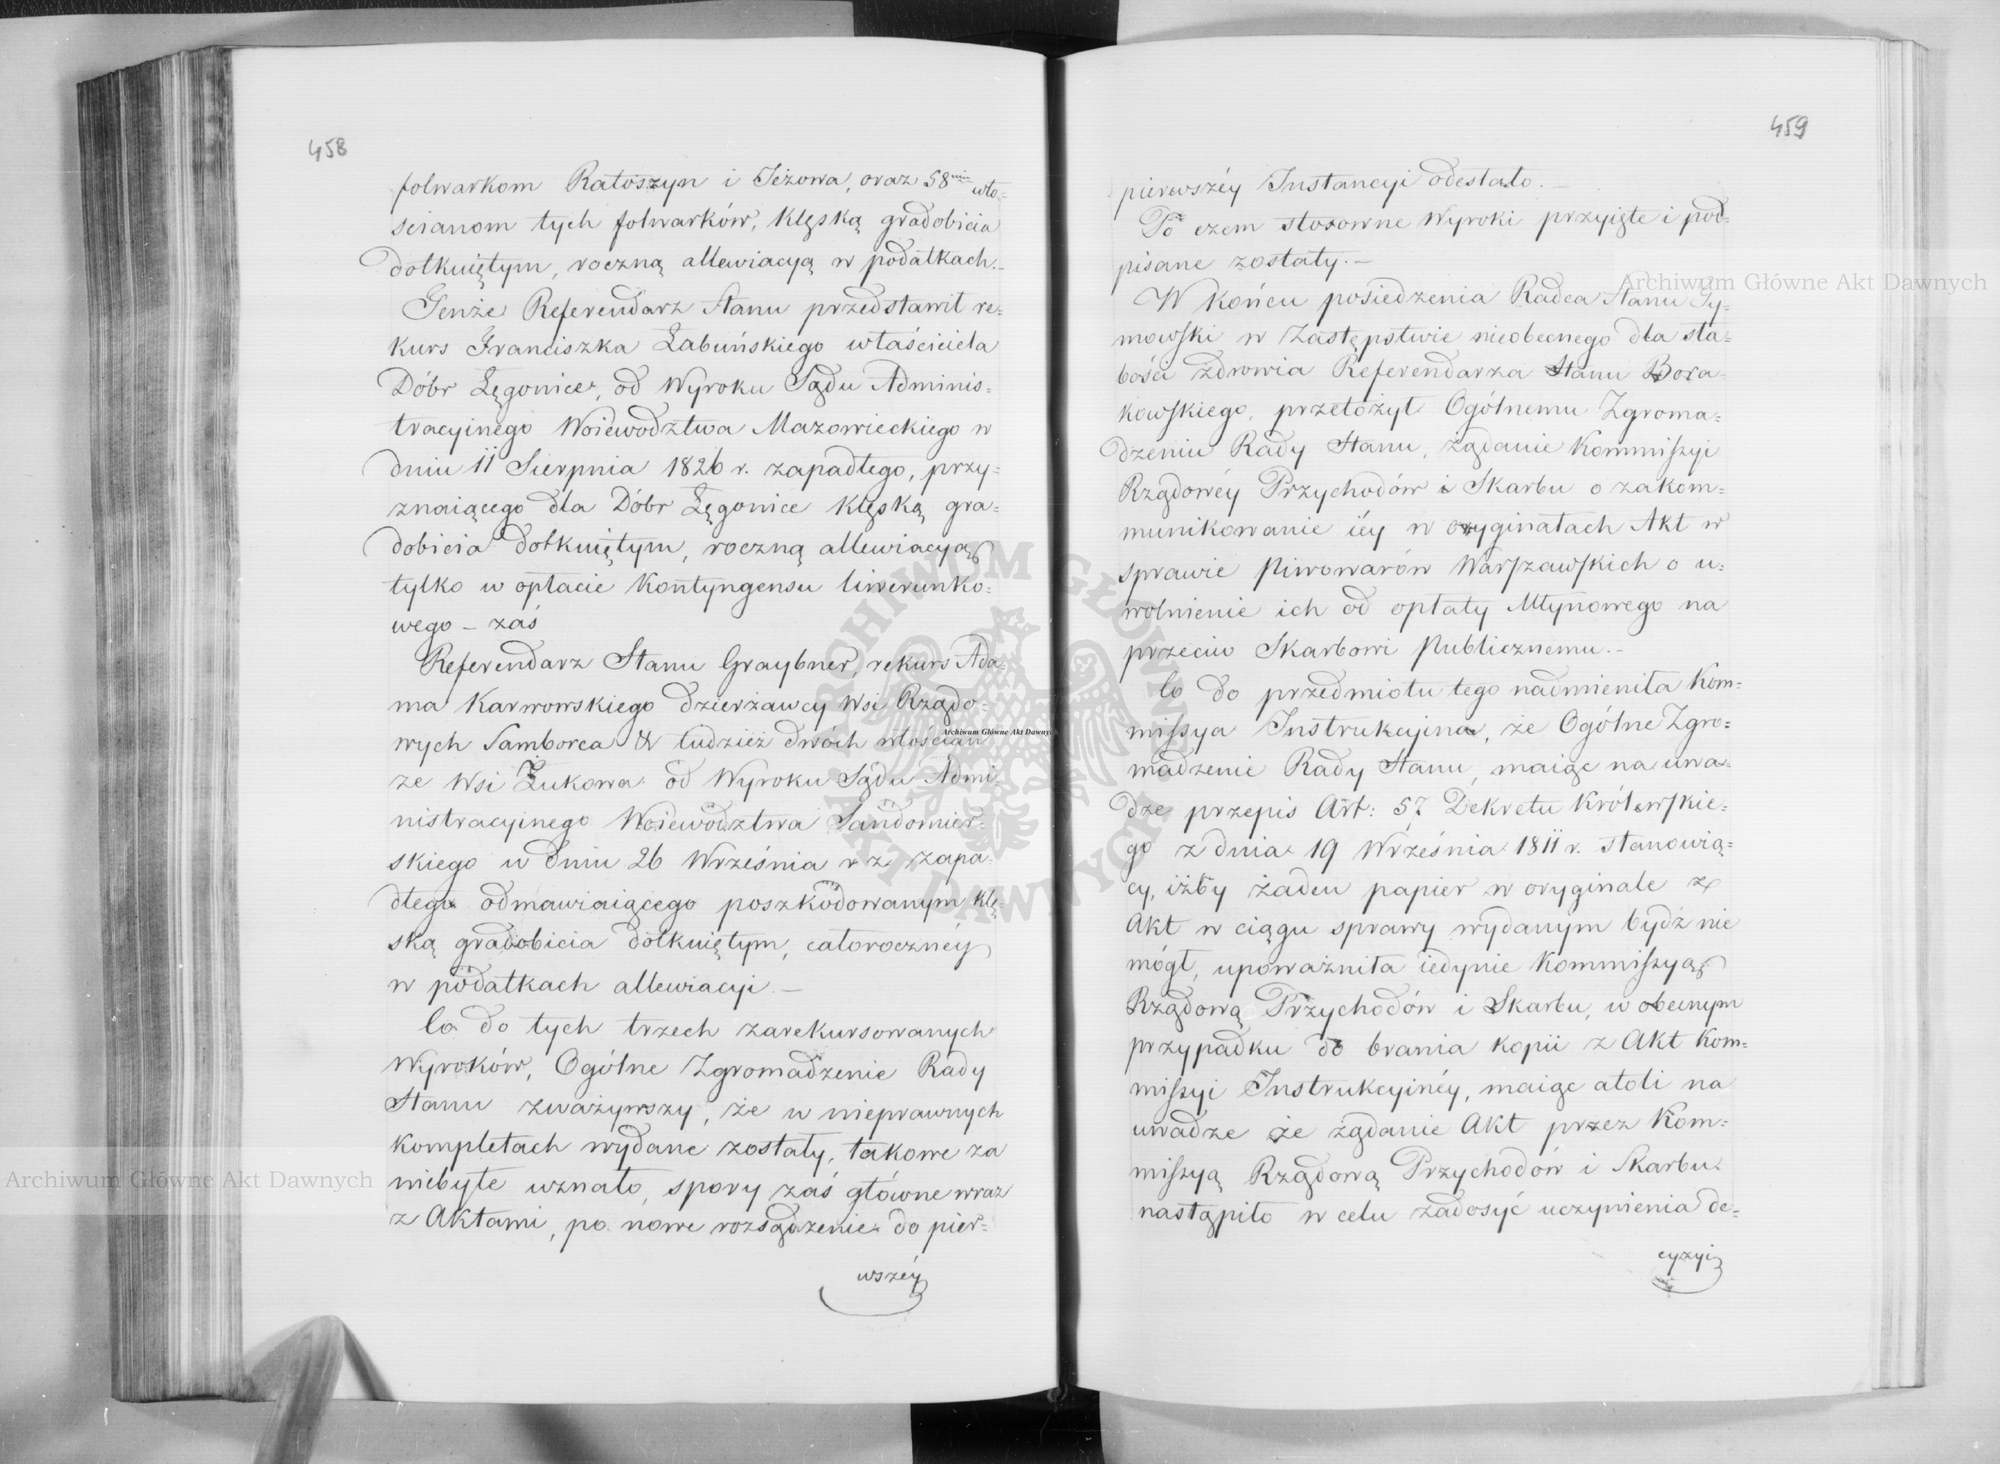 458
folwarkom Ratoszyn i Jeżowa, oraz 58miu wło-
scianom tych folwarków, klęską gradobicia
dotkniętym, roczną allewiacyą w podatkach.-
Tenże Referendarz Stanu przedstawił re-
kurs Franciszka Łabuńskiego właściciela
Dóbr Łęgonice, od Wyroku Sądu Adminis-
tracyjnego Woiewodztwa Mazowieckiego w
dniu 11 Sierpnia 1826 r. zapadłego, przy-
znaiącego dla Dóbr Łęgonice klęską gra-
dobicia dotkniętym, roczną allewiacyą
tylko w opłacie kontyngensu liwerunko-
wego – zaś
Referendarz Stanu Graybner, rekurs Ada-
ma Karwowskiego dzierżawcy Wsi Rządo-
wych Samborca & tudzież dwóch włościan
ze Wsi Żukowa od Wyroku Sądu Admi-
nistracyjnego Woiewództwa Sandomier-
skiego w dniu 26 Września r z zapa-
dłego odmawiaiącego poszkodowanym klę-
ską gradobicia dotkniętym, całoroczney
w podatkach allewiacyi –
Co do tych trzech zarekursowanych
Wyroków, Ogólne Zgromadzenie Rady
Stanu zważywszy, że w nieprawnych
kompletach wydane zostały, takowe za
niebyłe uznało, spory zaś główne wraz
z Aktami, po nowe rozsądzenie do pier-
wszéy
459
pierwszéy Instancyi odesłało. –
Po czem stosowne Wyroki przyięte i pod-
pisane zostały. –
W końcu posiedzenia Radca Stanu Ty-
mowski w zastępstwie nieobecnego dla sła-
bości zdrowia Referendarza Stanu Bora-
kowskiego, przełożył Ogólnemu Zgroma-
dzeniu Rady Stanu, żądanie Kommissyi
Rządowéy Przychodów i Skarbu o zakom-
munikowanie iéy w oryginałach Akt w
sprawie Piwowarów Warszawskich o u-
wolnienie ich od opłaty Młynowego na
przeciw Skarbowi Publicznemu. –
Co do przedmiotu tego nadmieniła Kom-
missya Instrukcyina, że Ogólne Zgro-
madzenie Rady Stanu, maiąc na uwa-
dze przepis Art: 57 Dekretu Królewskie-
go z dnia 19 Września 1811 r. stanowią-
cy, iżby żaden papier w oryginale z
Akt w ciągu sprawy wydanym bydź nie
mógł, upoważniła iedynie Kommissyą
Rządową Przychodów i Skarbu, w obecnym
przypadku do brania kopii z Akt Kom-
missyi Instrukcyinéy, maiąc atoli na
uwadze że żądanie Akt przez Kom-
missyą Rządową Przychodów i Skarbu
nastąpiło w celu zadosyć uczynienia de-
cyzyi
Archiwum Główne Akt Dawnych
Archiwum Główne Akt Dawnych
Archiwum Główne Akt Dawnych
ARCHIWUM GŁÓWNE AKT DAWNYCH